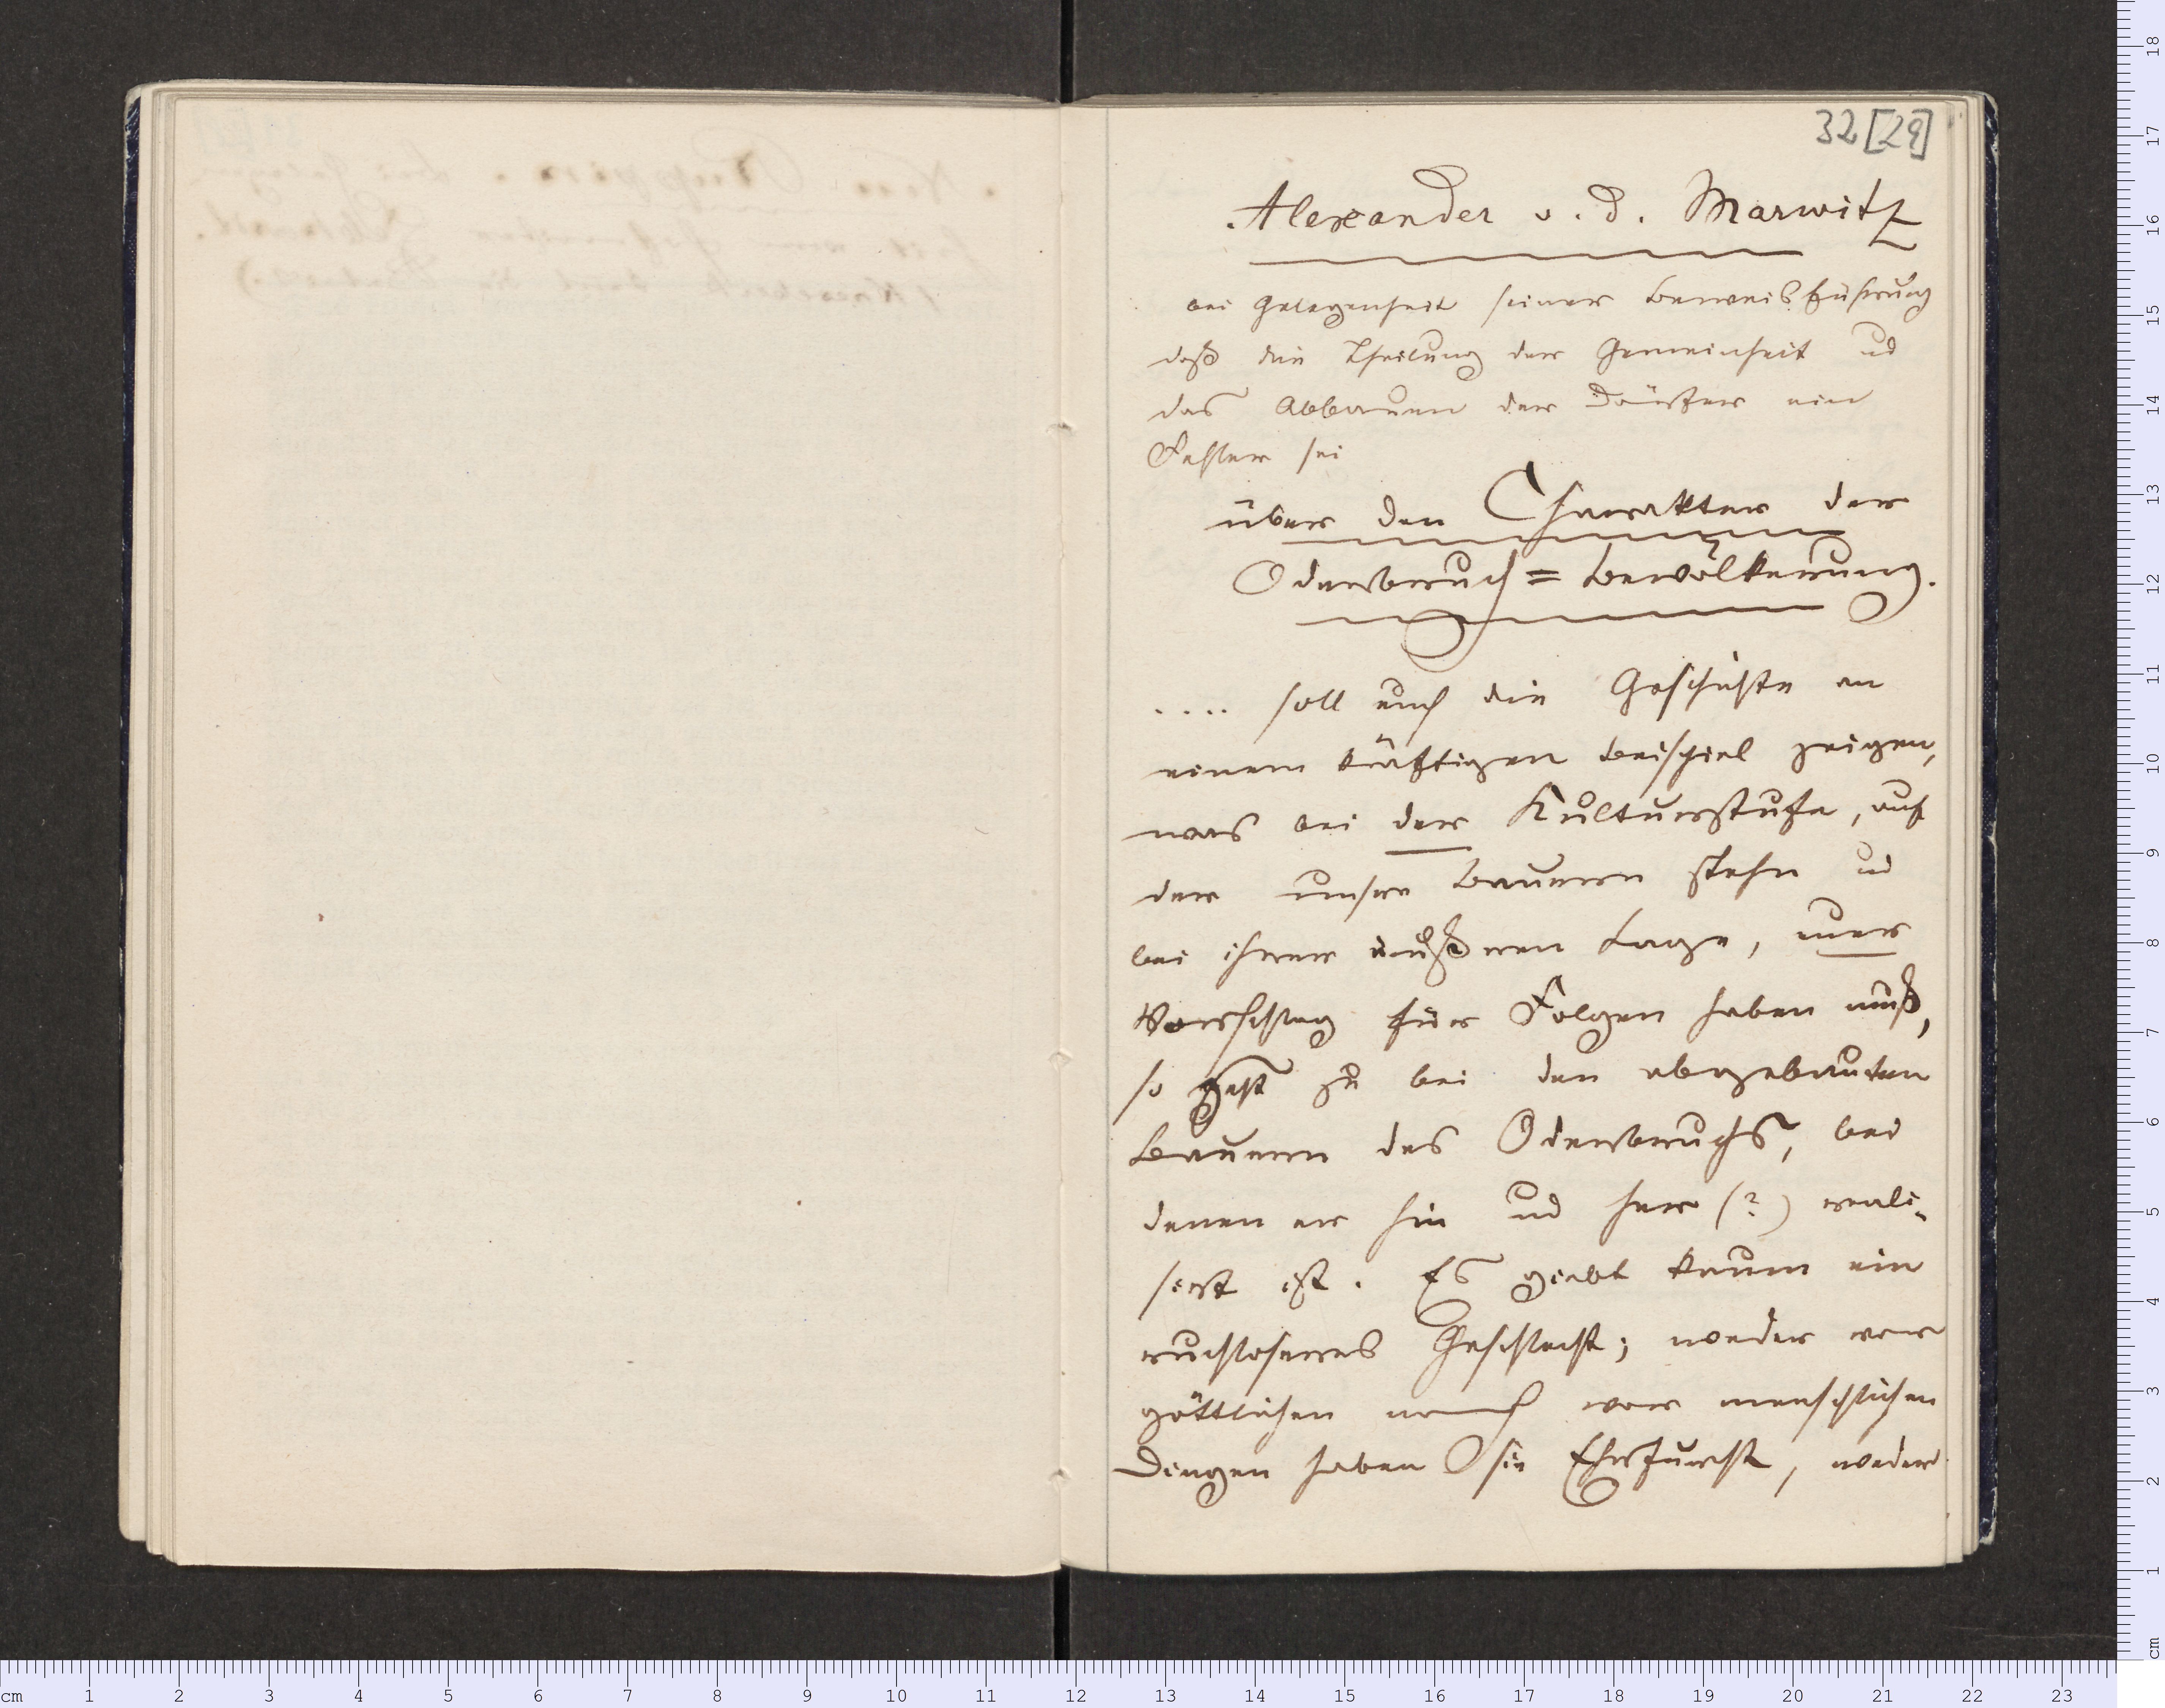 32[29]
Alexander v. d. Marwitz
bei Gelegenheit seiner Beweisführung
daß die Theilung der Gemeinheit ud
das Abbauen der Dörfer ein
Fehler sei
über den Charakter der
Oderbruch=Bevölkerung.
.... soll euch die Geschichte an
einem kräftigen Beispiel zeigen,
was bei der Kulturstufe, auf
der unsre Bauern stehn ud
bei ihrer äußeren Lage, euer
Vorschlag für Folgen haben muß,
so geht zu bei den abgebauten
Bauern des Oderbruchs, bei
denen er hin ud her (?) reali-
sirt ist. Es giebt kaum ein
ruchloseres Geschlecht; weder vor
göttlichen noch vor menschlichen
Dingen haben sie Ehrfurcht, weder